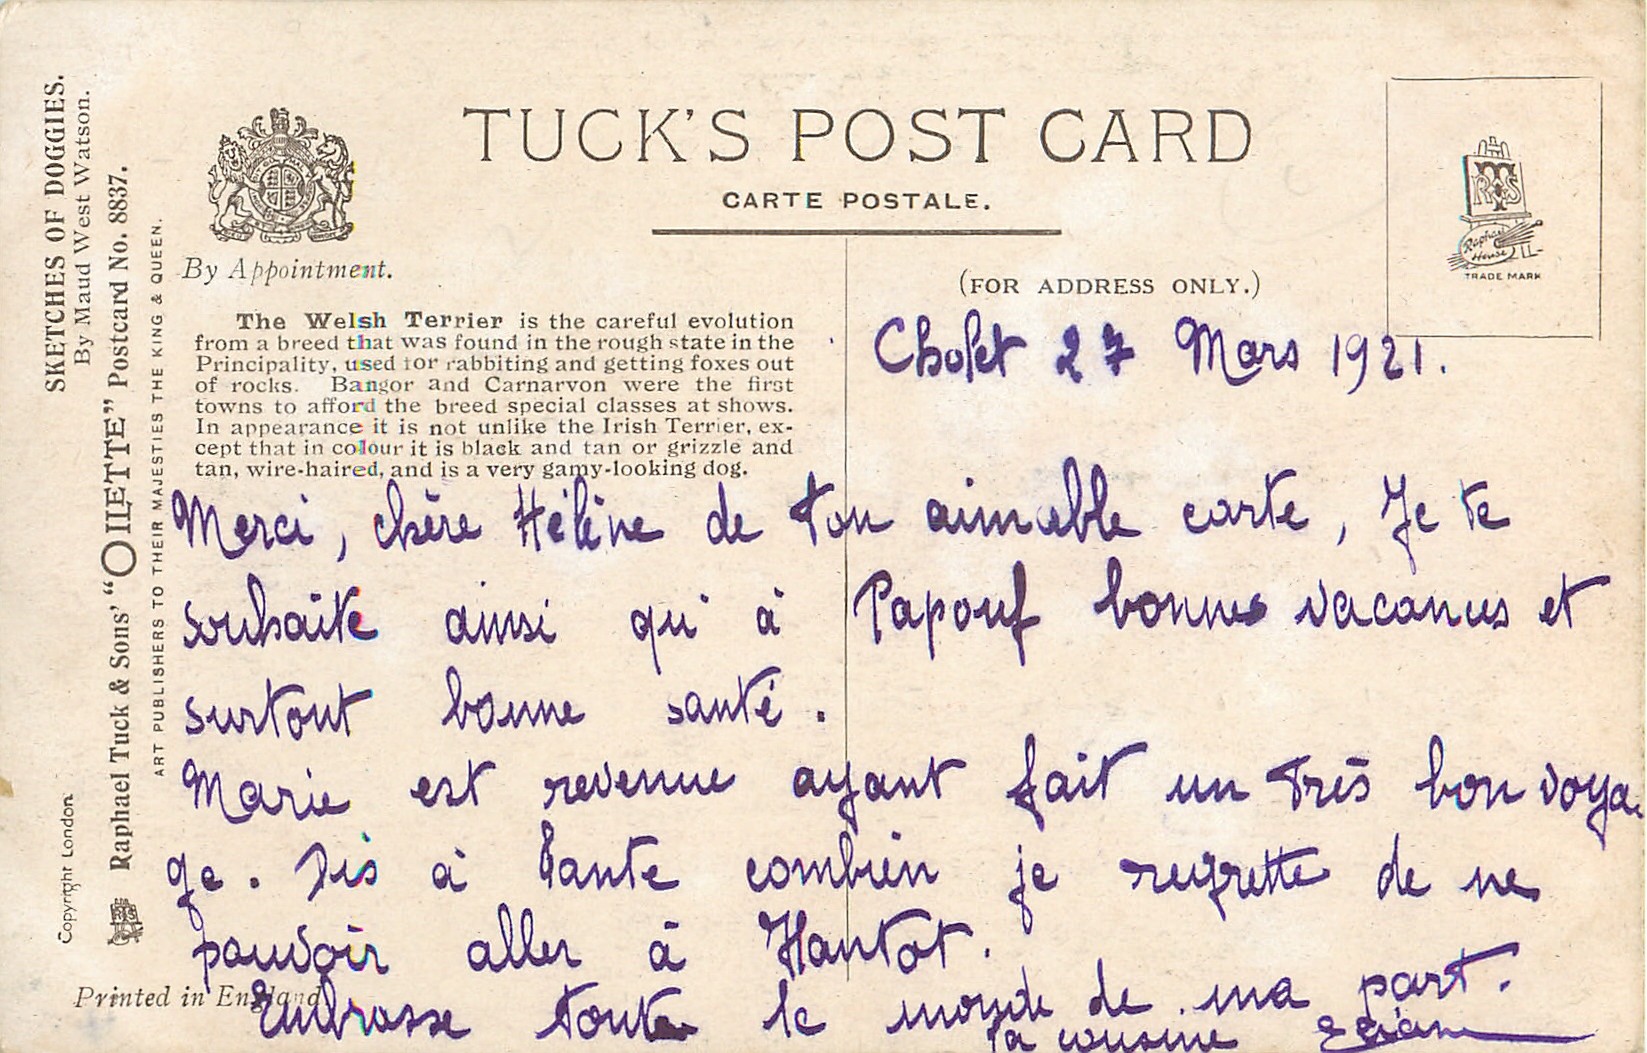 SKETCHES OF DOGGIES.
By Maud West Watson.
Raphael Tuck & Sons' "OILETTE" Postcard No. 8837.
ART PUBLISHERS TO THEIR MAJESTIES THE KING & QUEEN.
Copyright London.
By Appointment.
TUCK'S POST CARD
CARTE POSTALE.
(FOR ADDRESS ONLY.)
RTS
Raphael
House
TRADE MARK
The Welsh Terrier is the careful evolution
from a breed that was found in the rough state in the
Principality, used for rabbiting and getting foxes out
of rocks. Bangor and Carnarvon were the first
towns to afford the breed special classes at shows.
In appearance it is not unlike the Irish Terrier, ex-
cept that in colour it is black and tan or grizzle and
tan, wire-haired, and is a very gamy-looking dog.
Cholet 27 Mars 1921.
Merci, chère Hélène de ton aimable carte, Je te
souhaite ainsi qu'à Papouf bonnes vacances et
surtout bonne santé.
Marie est revenue ayant fait un très bon voya-
ge. Dis à tante combien je regrette de ne
pouvoir aller à Hantot.
Embrasse tout le monde de ma part.
Ta cousine
Printed in England